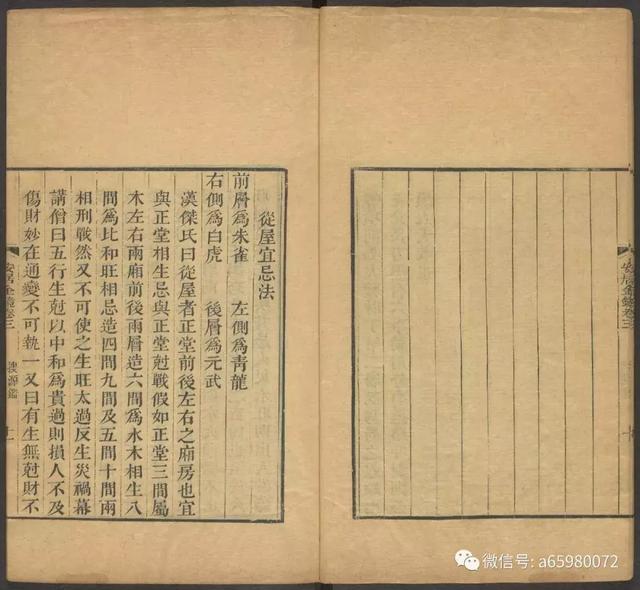 安居金鏡卷三
從屋宜忌法
前層為朱雀 左側為青龍
右側為白虎 後層為元武
漢傑氏曰從屋者正堂前後左右之廂房也宜
與正堂相生忌與正堂尅戰假如正堂三間屬
木左右兩廂前後兩層造六間為水木相生八
間為比和旺相忌造四間九間及五間十間兩
相刑戰然又不可使之生旺太過反生災禍幕
講僧曰五行生尅以中和為貴過則損人不及
傷財妙在通變不可執一又曰有生無尅財不
安居金鏡卷三 搜源鑑 十一
微信号: a65980072